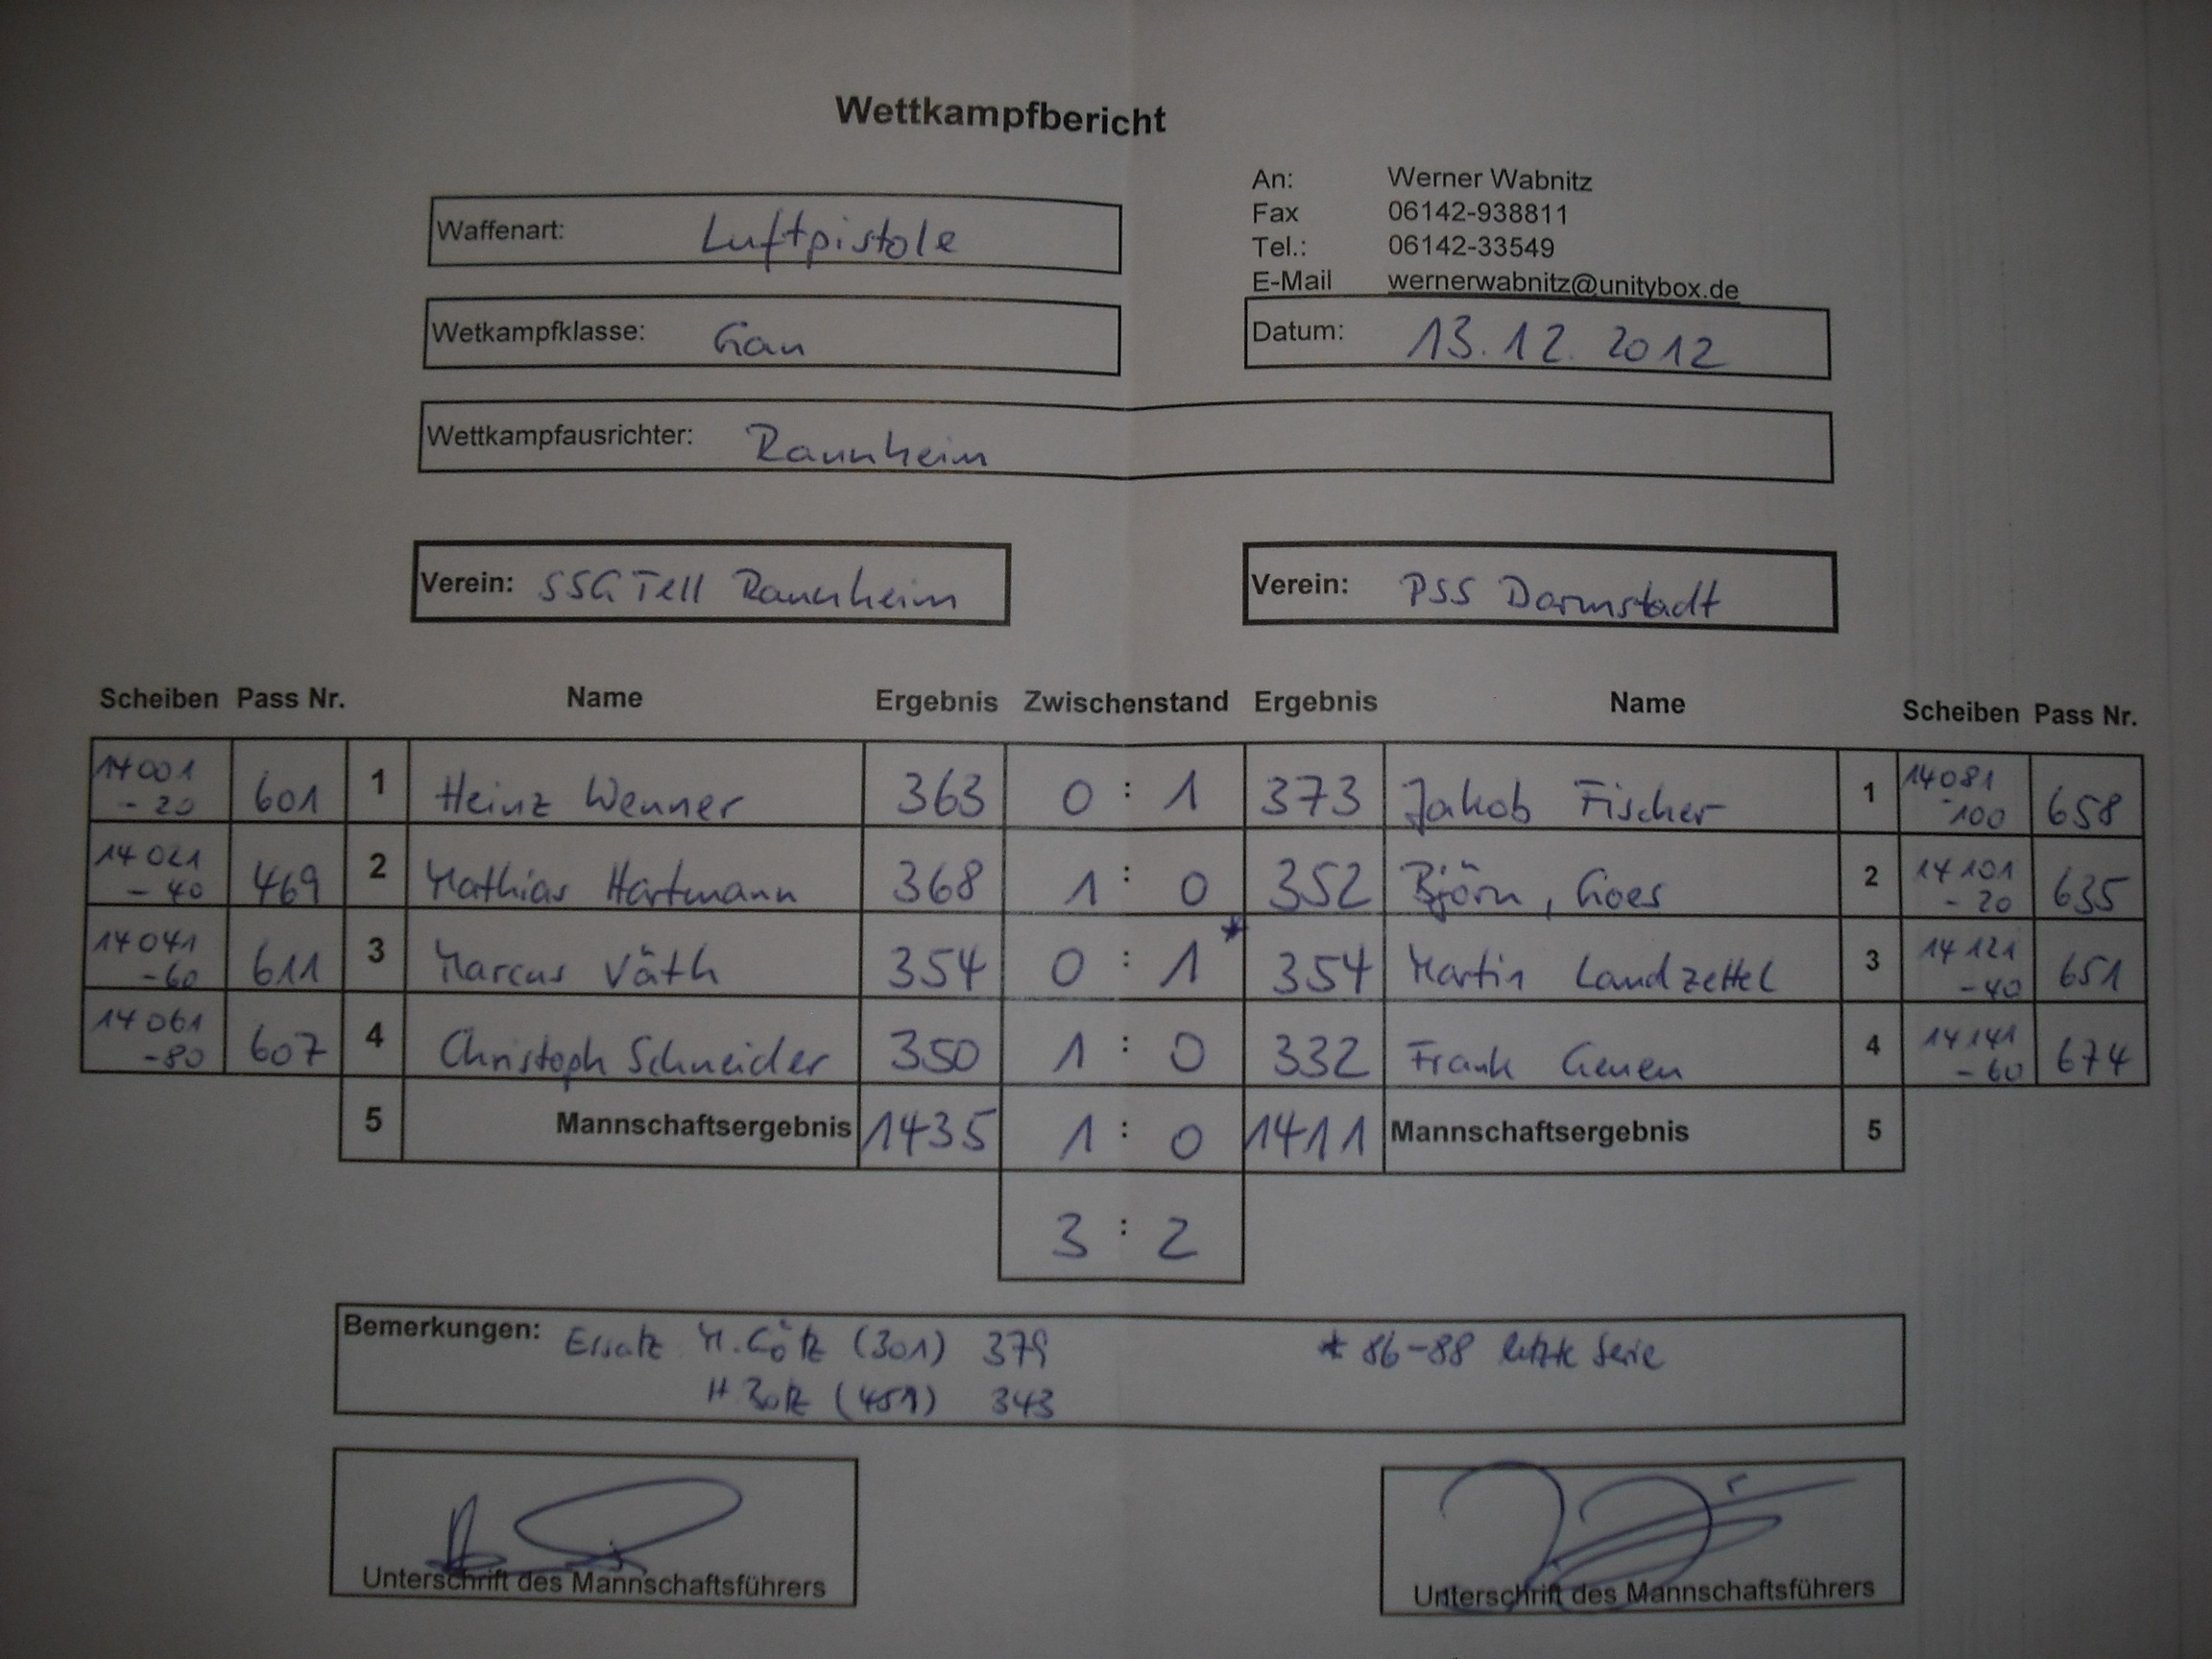 Wettkampfbericht
An: Werner Wabnitz
Fax 06142-938811
Tel.: 06142-33549
E-Mail wernerwabnitz@unitybox.de
Waffenart: Luftpistole
Wetkampfklasse: Gau
Datum: 13.12.2012
Wettkampfausrichter: Raunheim
Verein: SSG Tell Raunheim
Verein: PSS Darmstadt
Scheiben Pass Nr. Name Ergebnis Zwischenstand Ergebnis Name Scheiben Pass Nr.
14001 -20 601 1 Heinz Wenner 363 0 : 1 373 Jakob Fischer 1 14081 -100 658
14021 -40 469 2 Mathias Hartmann 368 1 : 0 352 Björn, Goes 2 14101 -20 635
14041 -60 611 3 Marcus Väth 354 0 : 1* 354 Martin Landzettel 3 14121 -40 651
14061 -80 607 4 Christoph Schneider 350 1 : 0 332 Frank 4 14141 -60 674
5 Mannschaftsergebnis 1435 1 : 0 1411 Mannschaftsergebnis 5
3 : 2
Bemerkungen: Ersatz M. Götz (301) 379 * 86-88 letzte Serie
H (451) 343
Unterschrift des Mannschaftsführers
Unterschrift des Mannschaftsführers